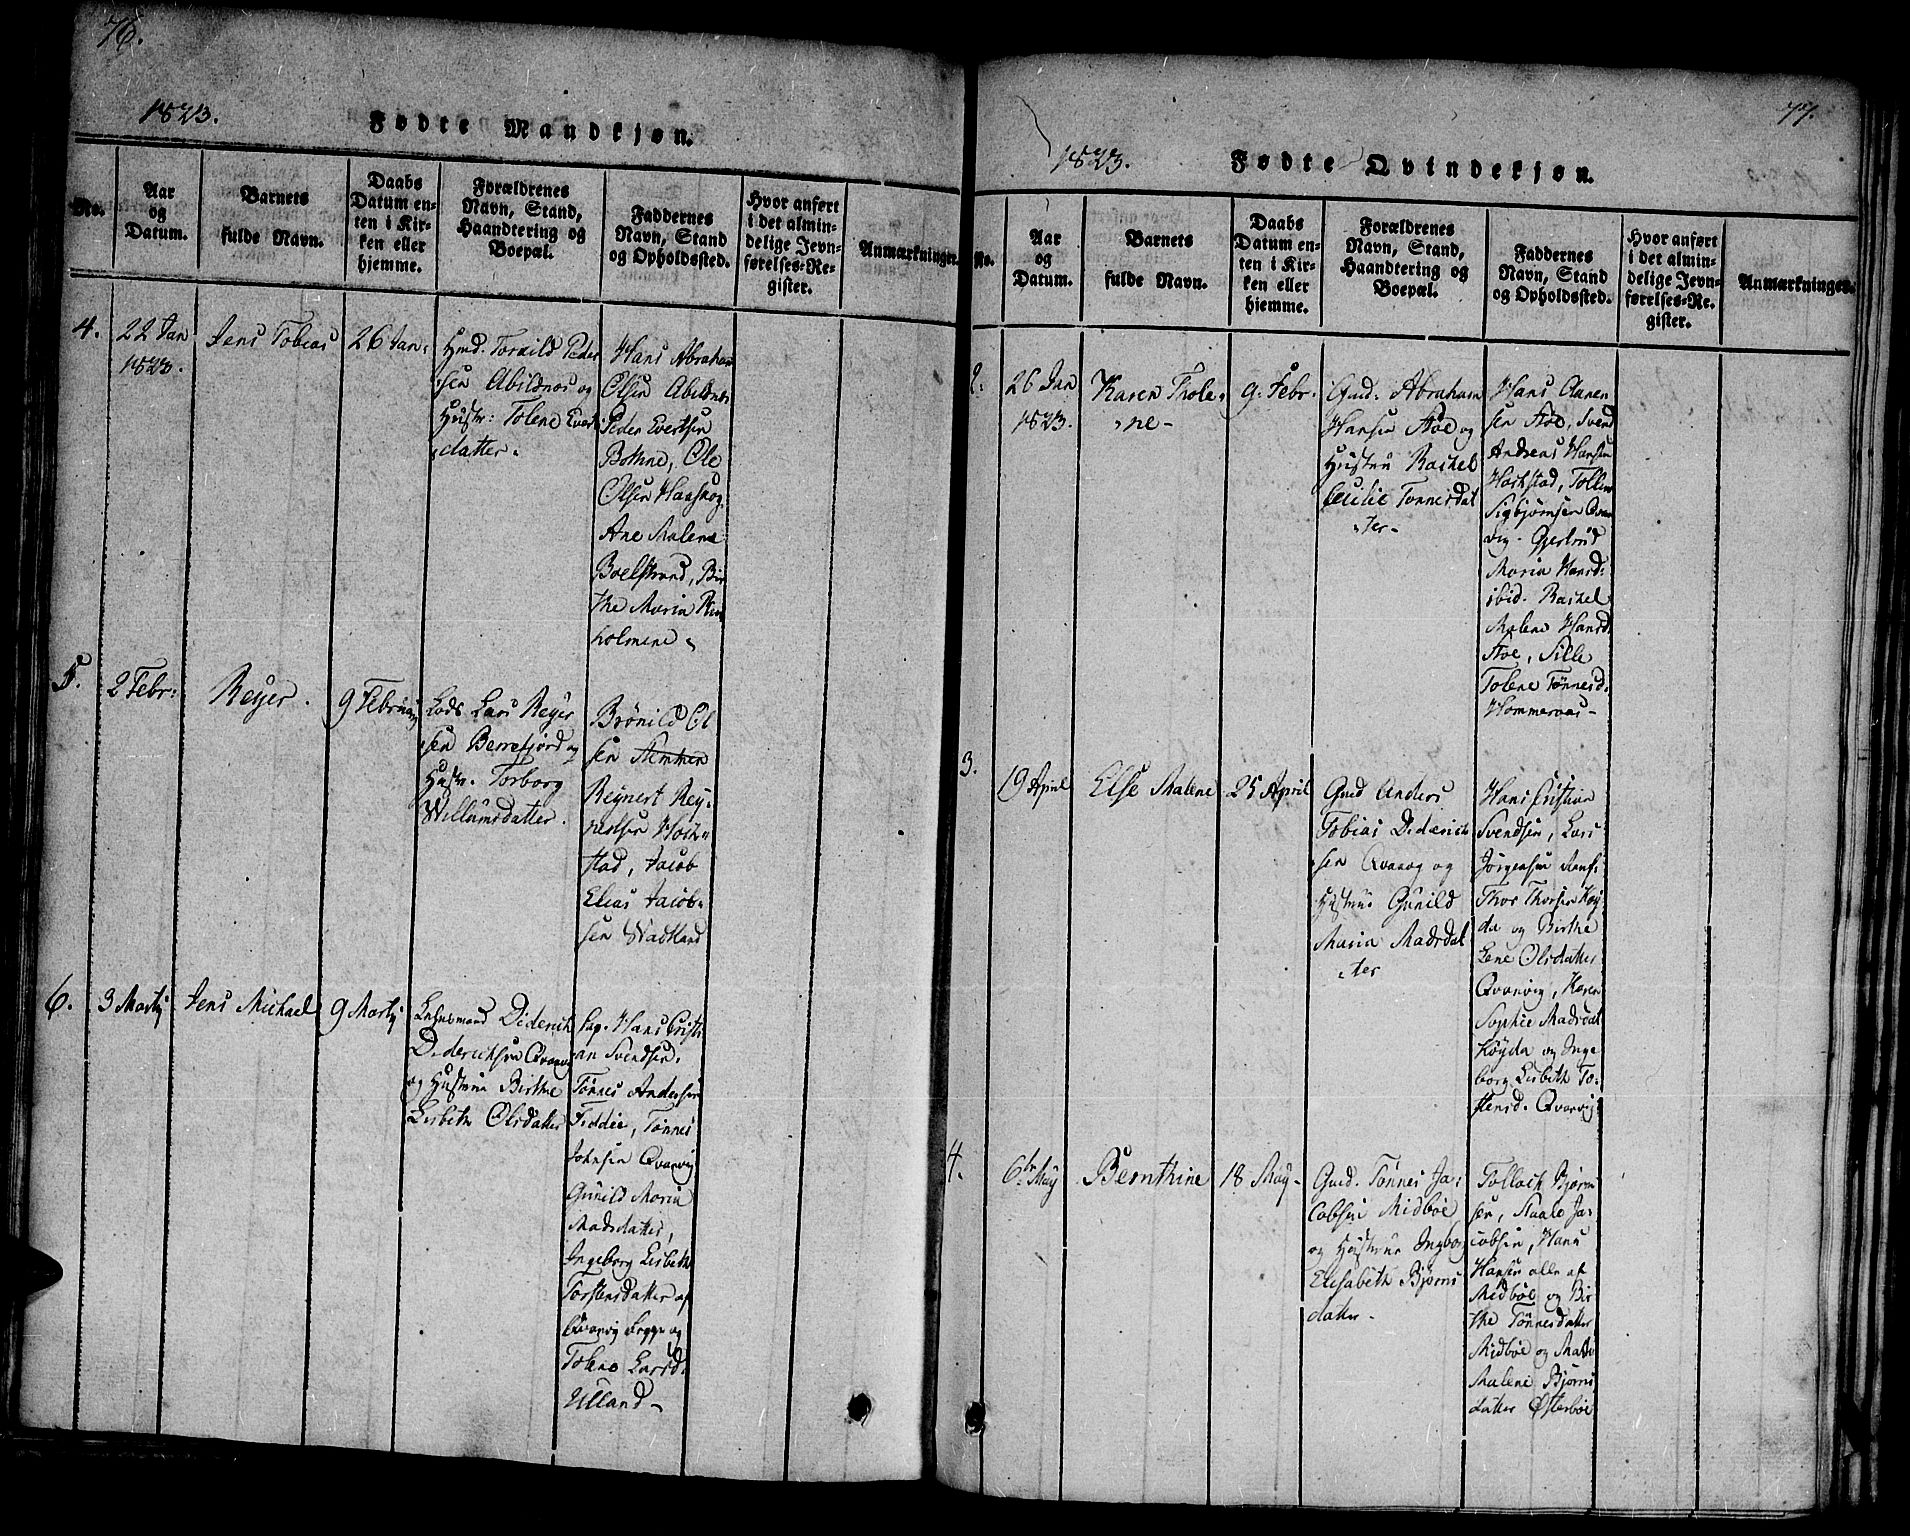 76.
1823.
Fødte Mandkjøn.
No.
Aar
og
Datum.
Barnets
fulde Navn.
Daabs
Datum en-
ten i Kir-
ken eller
hjemme.
Forældrenes
Navn, Stand,
Haandtering og
Boepæl.
Faddernes
Navn, Stand
og Opholdssted.
Hvor anført
i det almin-
delige Jevn-
førelses-Re-
gister.
Anmærkninger.
4.
22 Jan
1823.
Jens Tobias
26 Jan:
Gmd. Torkild Peder
sen Abildnes og
Hustr: Tolene Evert
datter.
Hans Abraham
Olsen Abildnes
Peder Evertsen
Bothne, Ole
Olsen
Ane Malene
Boelstrand, Bir
the Maria
holmene
5.
2 Febr:
Reyer.
9 Februar
Lods Lars Reyer
sen Berrefjord og
Hustr. Torborg
Willumsdatter.
Brønild Ol
sen
Reynert Rey-
nertsen
stad, Jacob
Elias Jacob-
sen Vatland
6.
3 Martij
Jens Michael
9 Martij
Diderich
Diderichsen Qvanvig
og Hustrue Birthe
Lisbeth Olsdatter
Hans Cristi
an Svendsen,
Tønnes Andersen
Feddee, Tønnes
Johnsen Qvanvig
Gunild Maria
Madsdatter,
Ingeborg Lisbeth
Torstensdatter af
Qvanvig og
Tolene Larsd.
Ulland-
77.
1823.
Fødte Qvindekjøn.
No.
Aar
og
Datum.
Barnets
fulde Navn.
Daabs
Datum en-
ten i Kir-
ken eller
hjemme.
Forældrenes
Navn, Stand,
Haandtering og
Boepæl.
Faddernes
Navn, Stand
og Opholdssted.
Hvor anført
i det almin-
delige Jevn-
førelses-Re-
gister.
Anmærkninger.
2.
26 Jan
1823.
Karen Thole-
ne-
9. Febr.
Gmd: Abraham
Hansen Stoe og
Hustru Rachel
Cecilie Tonnesdat
ter-
Hans Aanen
sen Stoe, Svend
Andreas Hansen
Tollew
Sigbjørnsen Qvan
vig. Gjertrud
Maria Hansd:
ibid. Rachel
Malene Hansd.
Stoe, Sille
Tolene Tønnesd.
Hommervas-
3.
19 April
Else Malene
25 April
Gmd Anders
Tobias Diderich
sen Qvanvig og
Hustrue Gunild
Maria Madsdat
ter
Hans Cristian
Svendsen, Lars
Jørgensen
Thor Thorsen Køy
da og Birthe
Lene Olsdatter
Qvanvig, Karen
Sophie Madsdat
Køyda og Inge
borg Lisbeth To-
stensd. Qvanvig
4.
6te May
Bernthine
18 May-
Gmd. Tønnes Ja-
cobsen Midbøe
og Hustrue Ingborg
Elisabeth Bjørns
datter-
Tollach Bjørn
sen, Staale Ja-
cobsen, Hans
Hansen alle af
Midbøe og Bir
the Tønnesdatter
Midbøe og Marte
Malene Bjørns
datter Østerbøe